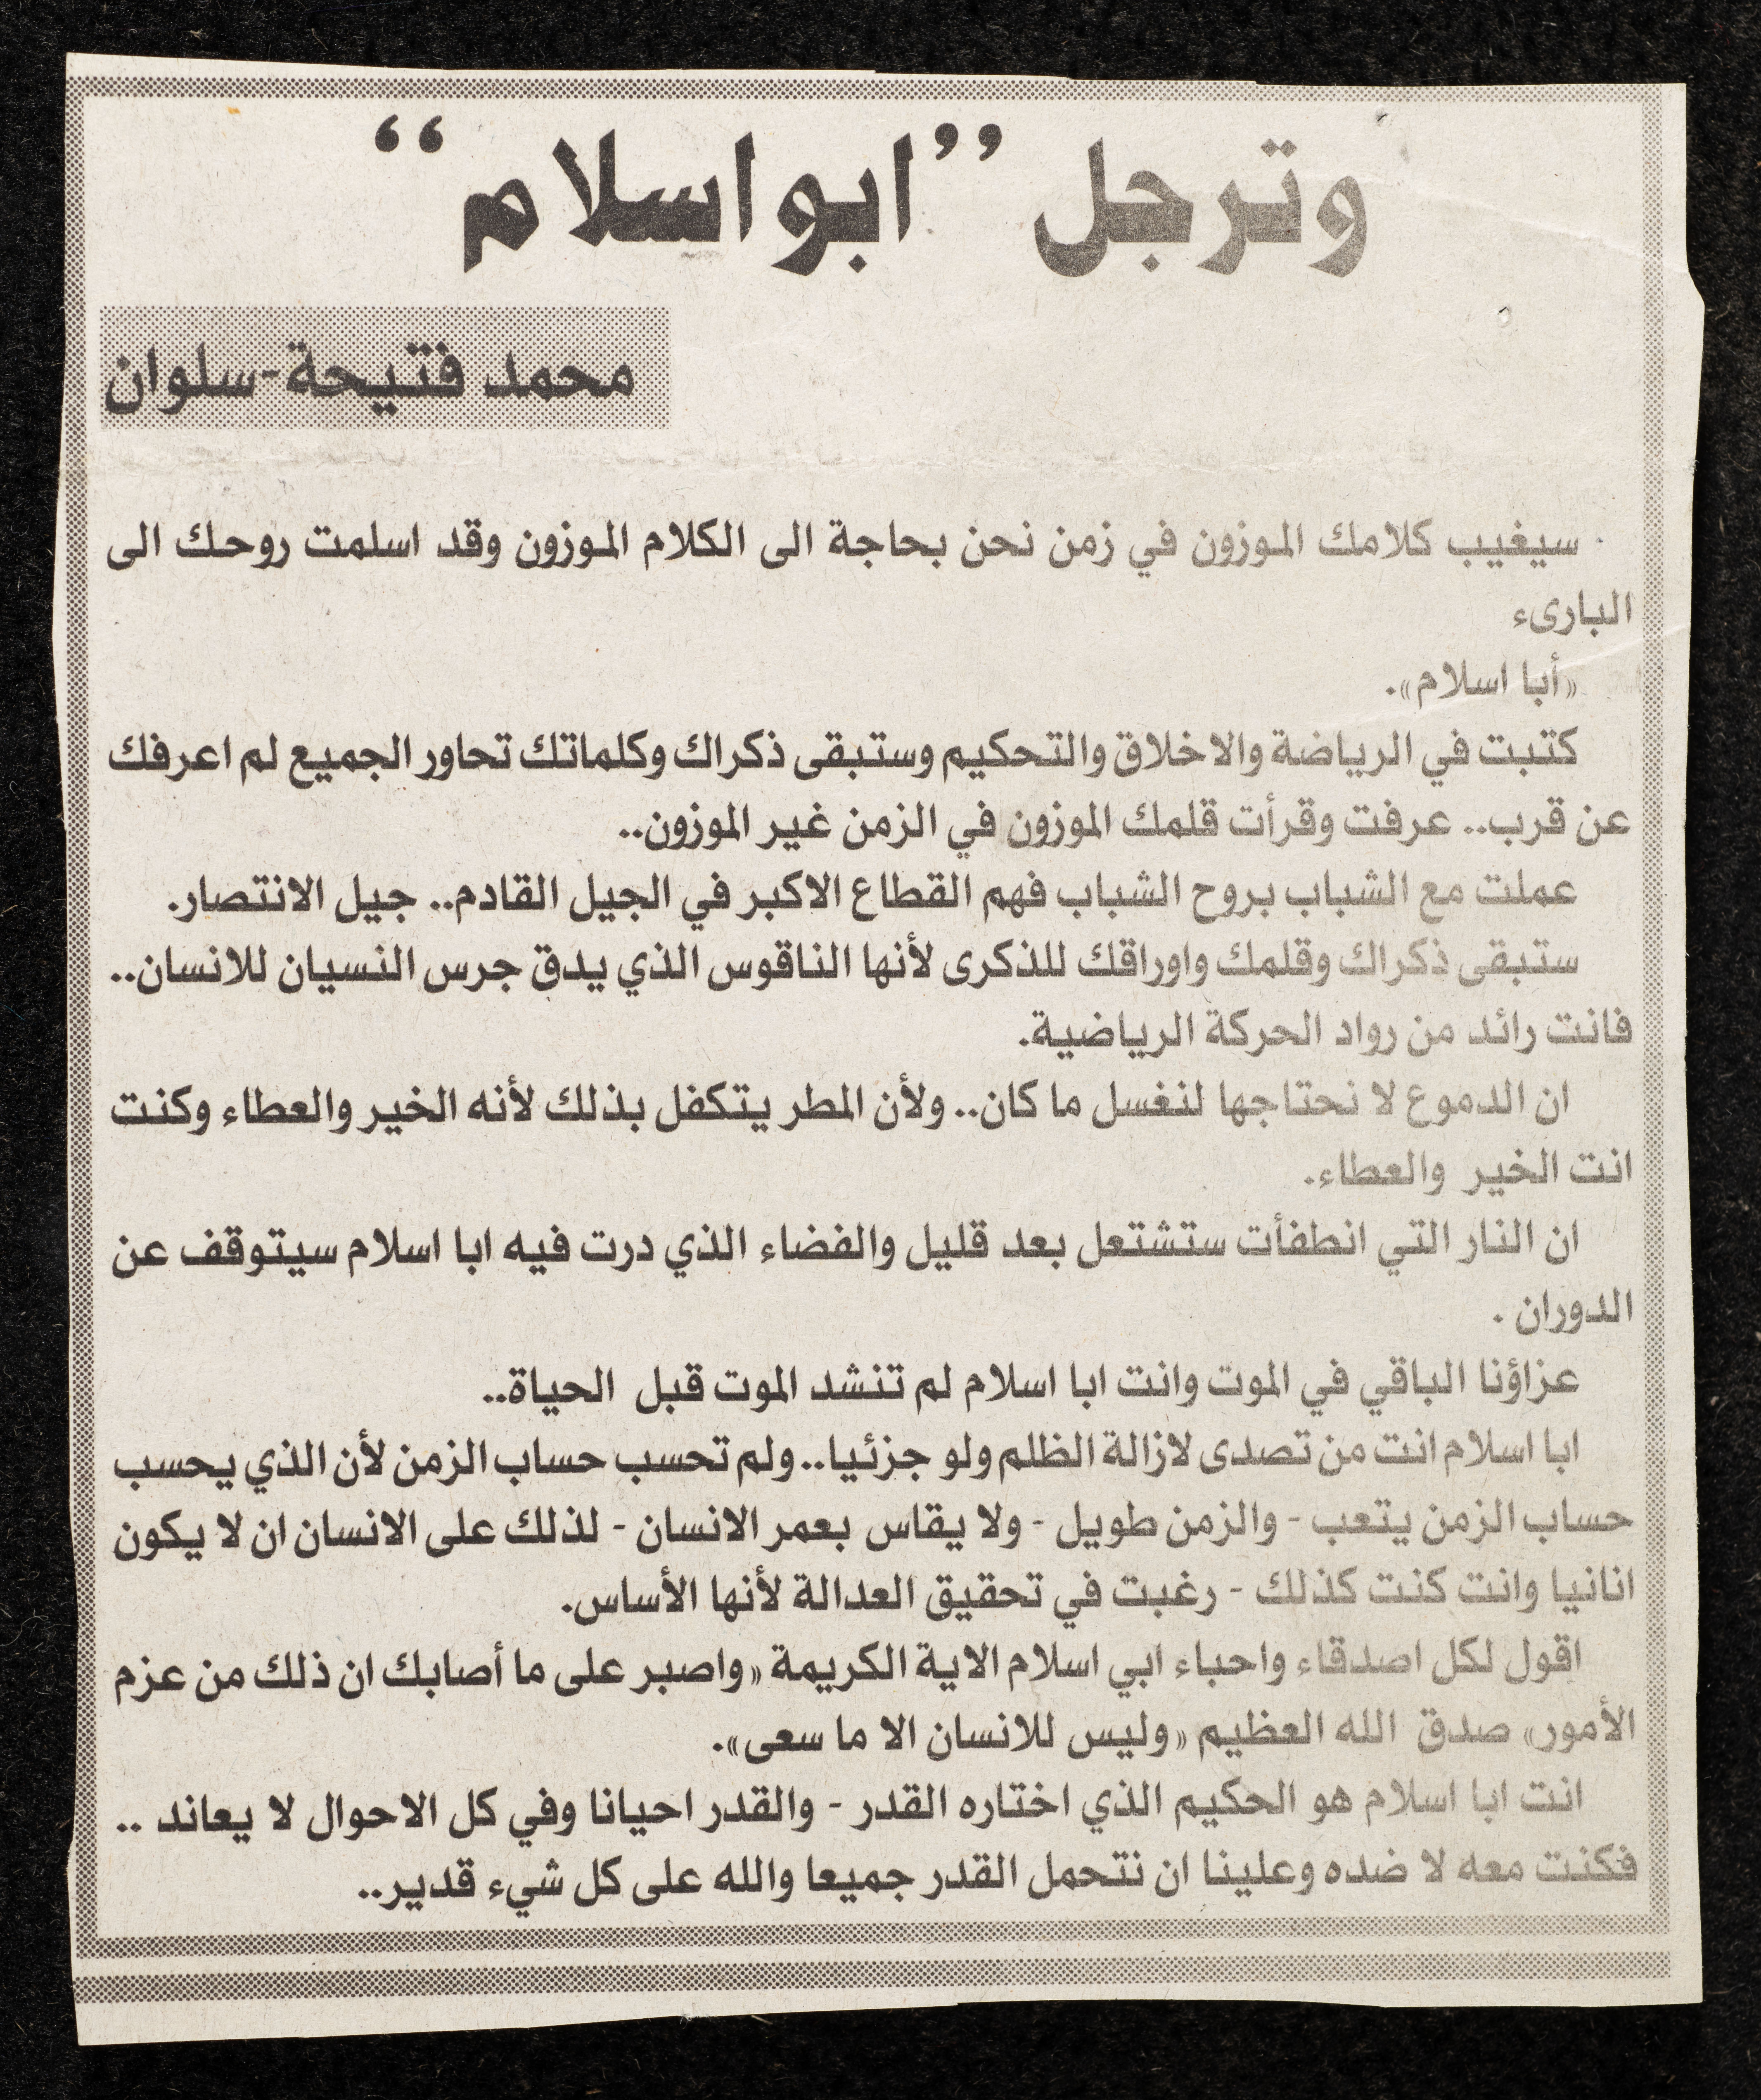 وترجل ”ابو اسلام“
محمد فتيحة-سلوان
سيغيب كلامك الموزون في زمن نحن بحاجة الى الكلام الموزون وقد اسلمت روحك الى
البارىء
«أبا اسلام».
كتبت في الرياضة والاخلاق والتحكيم وستبقى ذكراك وكلماتك تحاور الجميع لم اعرفك
عن قرب.. عرفت وقرأت قلمك الموزون في الزمن غير الموزون..
عملت مع الشباب بروح الشباب فهم القطاع الاكبر في الجيل القادم.. جيل الانتصار.
ستبقى ذكراك وقلمك واوراقك للذكرى لأنها الناقوس الذي يدق جرس النسيان للانسان..
فانت رائد من رواد الحركة الرياضية.
ان الدموع لا نحتاجها لنغسل ما كان.. ولأن المطر يتكفل بذلك لأنه الخير والعطاء وكنت
انت الخير والعطاء.
ان النار التي انطفأت ستشتعل بعد قليل والفضاء الذي درت فيه ابا اسلام سيتوقف عن
الدوران .
عزاؤنا الباقي في الموت وانت ابا اسلام لم تنشد الموت قبل الحياة..
ابا اسلام انت من تصدى لازالة الظلم ولو جزئيا.. ولم تحسب حساب الزمن لأن الذي يحسب
حساب الزمن يتعب - والزمن طويل - ولا يقاس بعمر الانسان - لذلك على الانسان ان لا يكون
انانيا وانت كنت كذلك - رغبت في تحقيق العدالة لأنها الأساس.
اقول لكل اصدقاء واحباء ابي اسلام الاية الكريمة «واصبر على ما أصابك ان ذلك من عزم
الأمور» صدق الله العظيم «وليس للانسان الا ما سعى».
انت ابا اسلام هو الحكيم الذي اختاره القدر - والقدر احيانا وفي كل الاحوال لا يعاند ..
فكنت معه لا ضده وعلينا ان نتحمل القدر جميعا والله على كل شيء قدير..